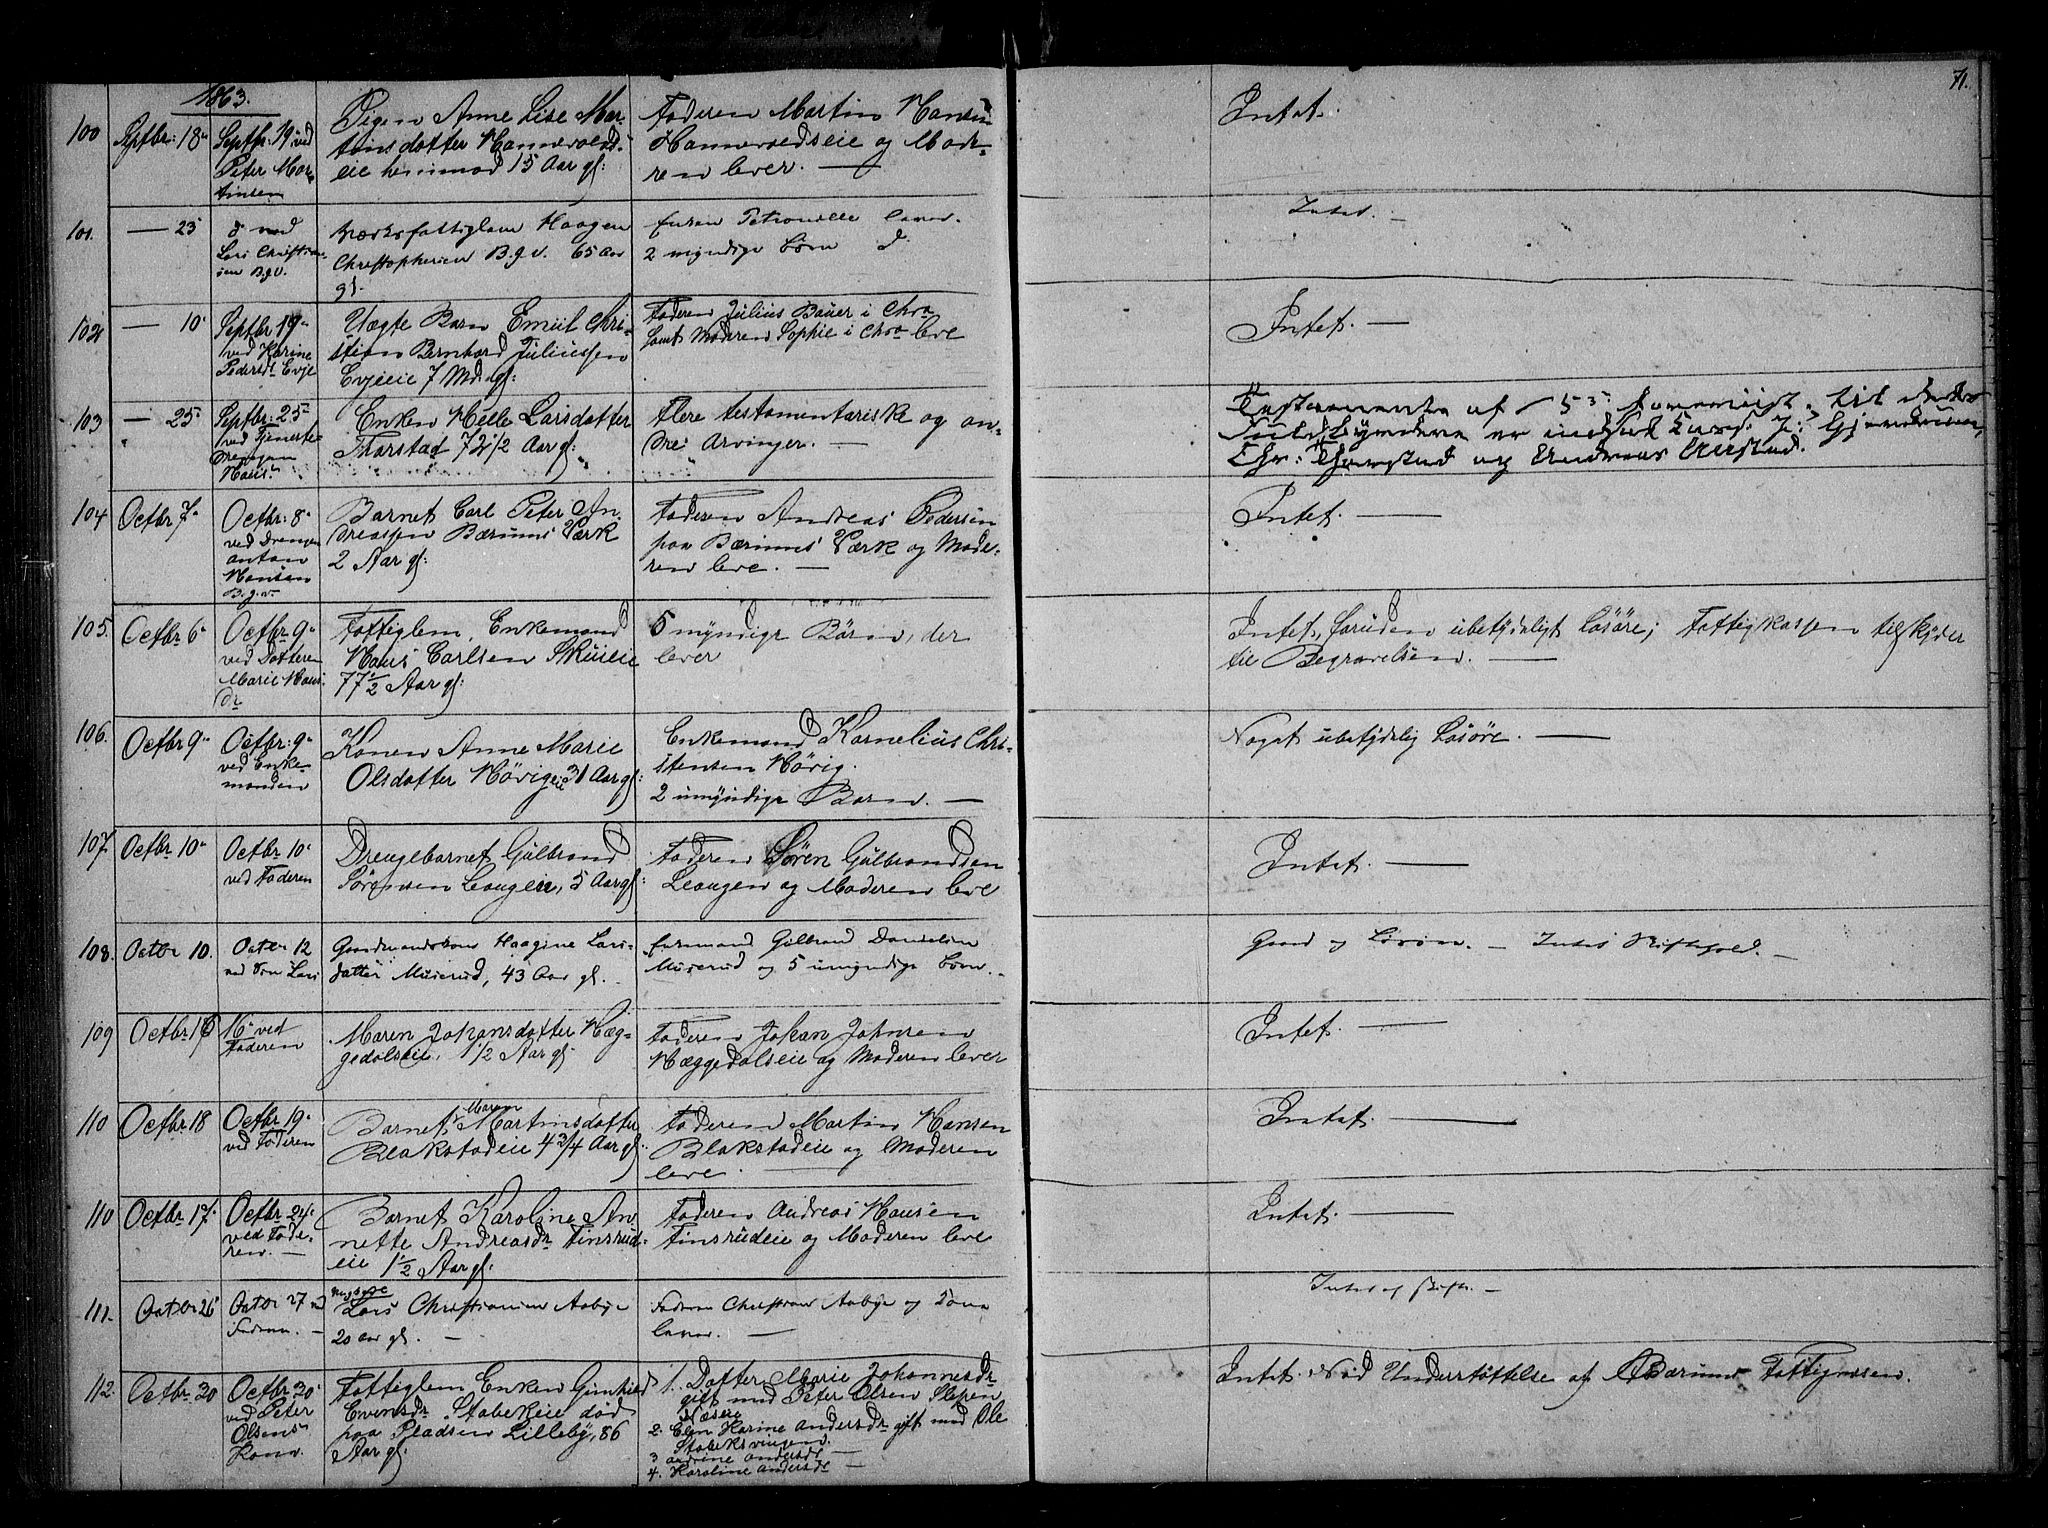 71.
1863.
100 Septbr: 18de Septbr: 19de ved Peter Martinsen
Pigen Anne Lise Mar-
tinsdatter Hammervolds-
eie hjemmed 15 Aar gl:
Faderen Martin Hansen
Hammervoldseie og Mode-
ren lever. —
Intet.
101. — 23
d ved
Lars Christian-
sen B.g.v.
Værksfattiglem Haagen
Christophersen B.g.v. 65 Aar
gl.
Enken Petronelle lever.
2 myndige Børn d.
Intet. —
102 — 10de
Septbr 19de
ved Karine
Pedersdt Evje
Uægte Barn Emiil Chri-
stian Bernhard Juliussen
Evjeeie 7 Md. gl:
Faderen Julius Bauer i Chra
samt Moderen Sophie i Chra leve
Intet. —
103 — 25de
Septbr: 25de
ved
Drengen
Hans
Enken Helle Larsdatter
Thorstad 72 1/2 Aar gl:
Flere testamentariske og an-
dre Arvinger. —
Testamente af
Chr: Thorstad og Andreas
104 Octbr 7de
Octbr: 8de
ved Drengen
Anton
Hansen
B.g.v.
Barnet Carl Peter An-
dreassen Bærums Værk
2 Aar gl:
Faderen Andreas Pedersen
paa Bærums Værk og Mode-
ren leve. —
Intet. —
105. Octbr 6de
Octbr 9de
ved Datteren
Marie Hans-
dr
Fattiglem, Enkemand
Hans Carlsen Skuieie
77 1/2 Aar gl:
5 myndige Börn, der
lever
Intet, foruden ubetydeligt Lösöre; Fattigkassen tilskyder
til Begravelsen. —
106. Octbr 9de
Octbr: 9de
ved Enke-
manden
Konen Anne Marie
Olsdatter Hörigeie 31 Aar gl:
Enkemand Kornelius Chri-
stensen Hörig.
2 umyndige Børn. —
Noget ubetydelig Lösöre. —
107. Octbr 10de
Octbr 10de
ved Faderen
Drengebarnet Gulbrand
Sörensen Leangen, 5 Aar gl:
Faderen Sören Gulbrandsen
Leangen og Moderen leve
Intet. —
108. Octbr 10.
Octbr 12
ved Søn Lars
Gaardmandskone Haagine Lars-
datter Muserud, 43 Aar gl.
Enkemand Gulbrand Danielsen
Muserud og 5 umyndige Børn. -
Gaard og Løsøre. — Intet Skiftehold. —
109 Octbr 16
16de ved
Faderen
Maren Johansdatter Hæg-
gedalseie, 1 1/2 Aar gl:
Faderen Johan Johnsen
Hæggedalseie og Moderen lever
Intet. —
110 Octbr 18
Octbr 19de
ved Faderen
Maren
Barnet Martinsdatter
Blakstadeie 4 3/4 Aar gl:
Faderen Martin Hansen
Blakstadeie og Moderen
leve —
Intet. —
110 Octbr 17de
Octbr 24de
ved Fade-
ren. —
Barnet Karoline An-
nette Andreasdr Tinsrud-
eie 1 1/2 Aar gl.
Faderen Andreas Hansen
Tinsrudeie og Moderen leve
Intet. —
111. Octbr 26
Octbr 27 ved
Faderen. —
Ungkarl
Lars Christiansen Aabye
20 Aar gl. —
Faderen Christian Aabye og Kone
lever. —
Intet at skifte. —
112. Octbr 20
Octbr 30de
ved Peter
Olsens
Kone
Fattiglem Enken Gunhild
Evensdr Stabekeie död
paa Pladsen Lilleby, 86
Aar gl.
1. Datter Marie Johannesdr
gift med Peter Olsen Slepen
Næseie
2. Elen Karine Andersdr gift med Ole
Stabeksvingen.
3 Andrine Andersdr —
4. Karoline Andersdr —
Intet. Nöd Understöttelse af Bærums Fattigvæsen.